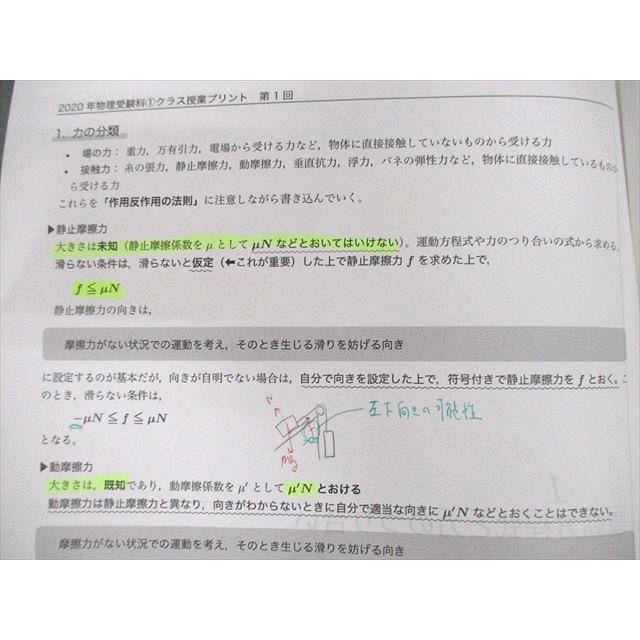 2020 年物理受験科①クラス授業プリント 第 1 回
1. 力の分類
・ 場の力： 重力，万有引力，電場から受ける力など，物体に直接接触していないものから受ける力
・ 接触力： 糸の張力，静止摩擦力，動摩擦力，垂直抗力，浮力，バネの弾性力など，物体に直接接しているものか
ら受ける力
これらを「作用反作用の法則」に注意しながら書き込んでいく。
▶静止摩擦力
大きさは未知（静止摩擦係数を μ として μN などとおいてはいけない）。運動方程式や力のつり合いの式から求める。
滑らない条件は，滑らないと仮定（⬅これが重要）した上で静止摩擦力 f を求めた上で，
f ≦ μN
静止摩擦力の向きは，
摩擦力がない状況での運動を考え，そのとき生じる滑りを妨げる向き
に設定するのが基本だが，向きが自明でない場合は，自分で向きを設定した上で，符号付きで静止摩擦力を f とおく。こ
のとき，滑らない条件は，
−μN ≦ f ≦ μN
左下向きの可能性
N
mg
となる。
▶動摩擦力
大きさは，既知であり，動摩擦係数を μ′ として μ′N とおける
動摩擦力は静止摩擦力と異なり，向きがわからないときに自分で適当な向きに μ′N などとおくことはできない。
摩擦力がない状況での運動を考え，そのとき生じる滑りを妨げる向き